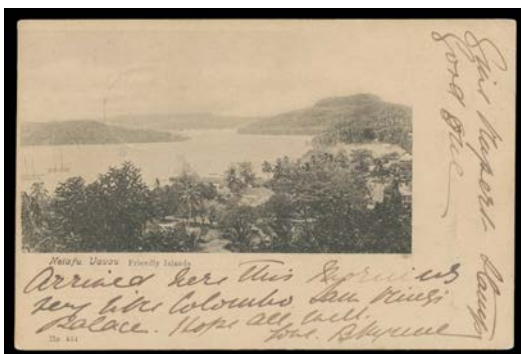 Neiafu Vavau Friendly Islands
Arrived here this morning
very like Colombo Saw Kings
Palace. Hope all well.
love.
Give Rupert Stamp
good one